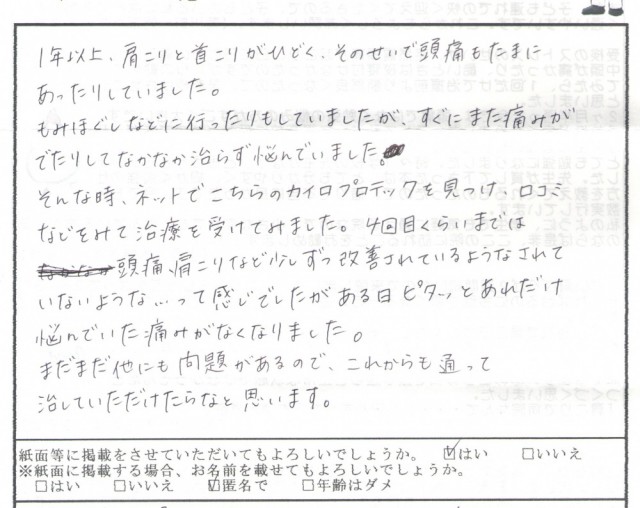 1年以上、肩こりと首こりがひどく、そのせいで頭痛もたまに
あったりしていました。
もみほぐしなどに行ったりもしていましたが、すぐにまた痛みが
でたりしてなかなか治らず悩んでいました。
そんな時、ネットでこちらのカイロプロテックを見つけ、口コミ
などをみて治療を受けてみました。4回目くらいまでは
頭痛、肩こりなど少しずつ改善されているようなされて
いないような…って感じでしたがある日ピタッとあれだけ
悩んでいた痛みがなくなりました。
まだまだ他にも問題があるので、これからも通って
治していただけたらなと思います。
紙面等に掲載をさせていただいてもよろしいでしょうか。 ☑はい □いいえ
※紙面に掲載する場合、お名前を載せてもよろしいでしょうか。
□はい □いいえ ☑匿名で □年齢はダメ